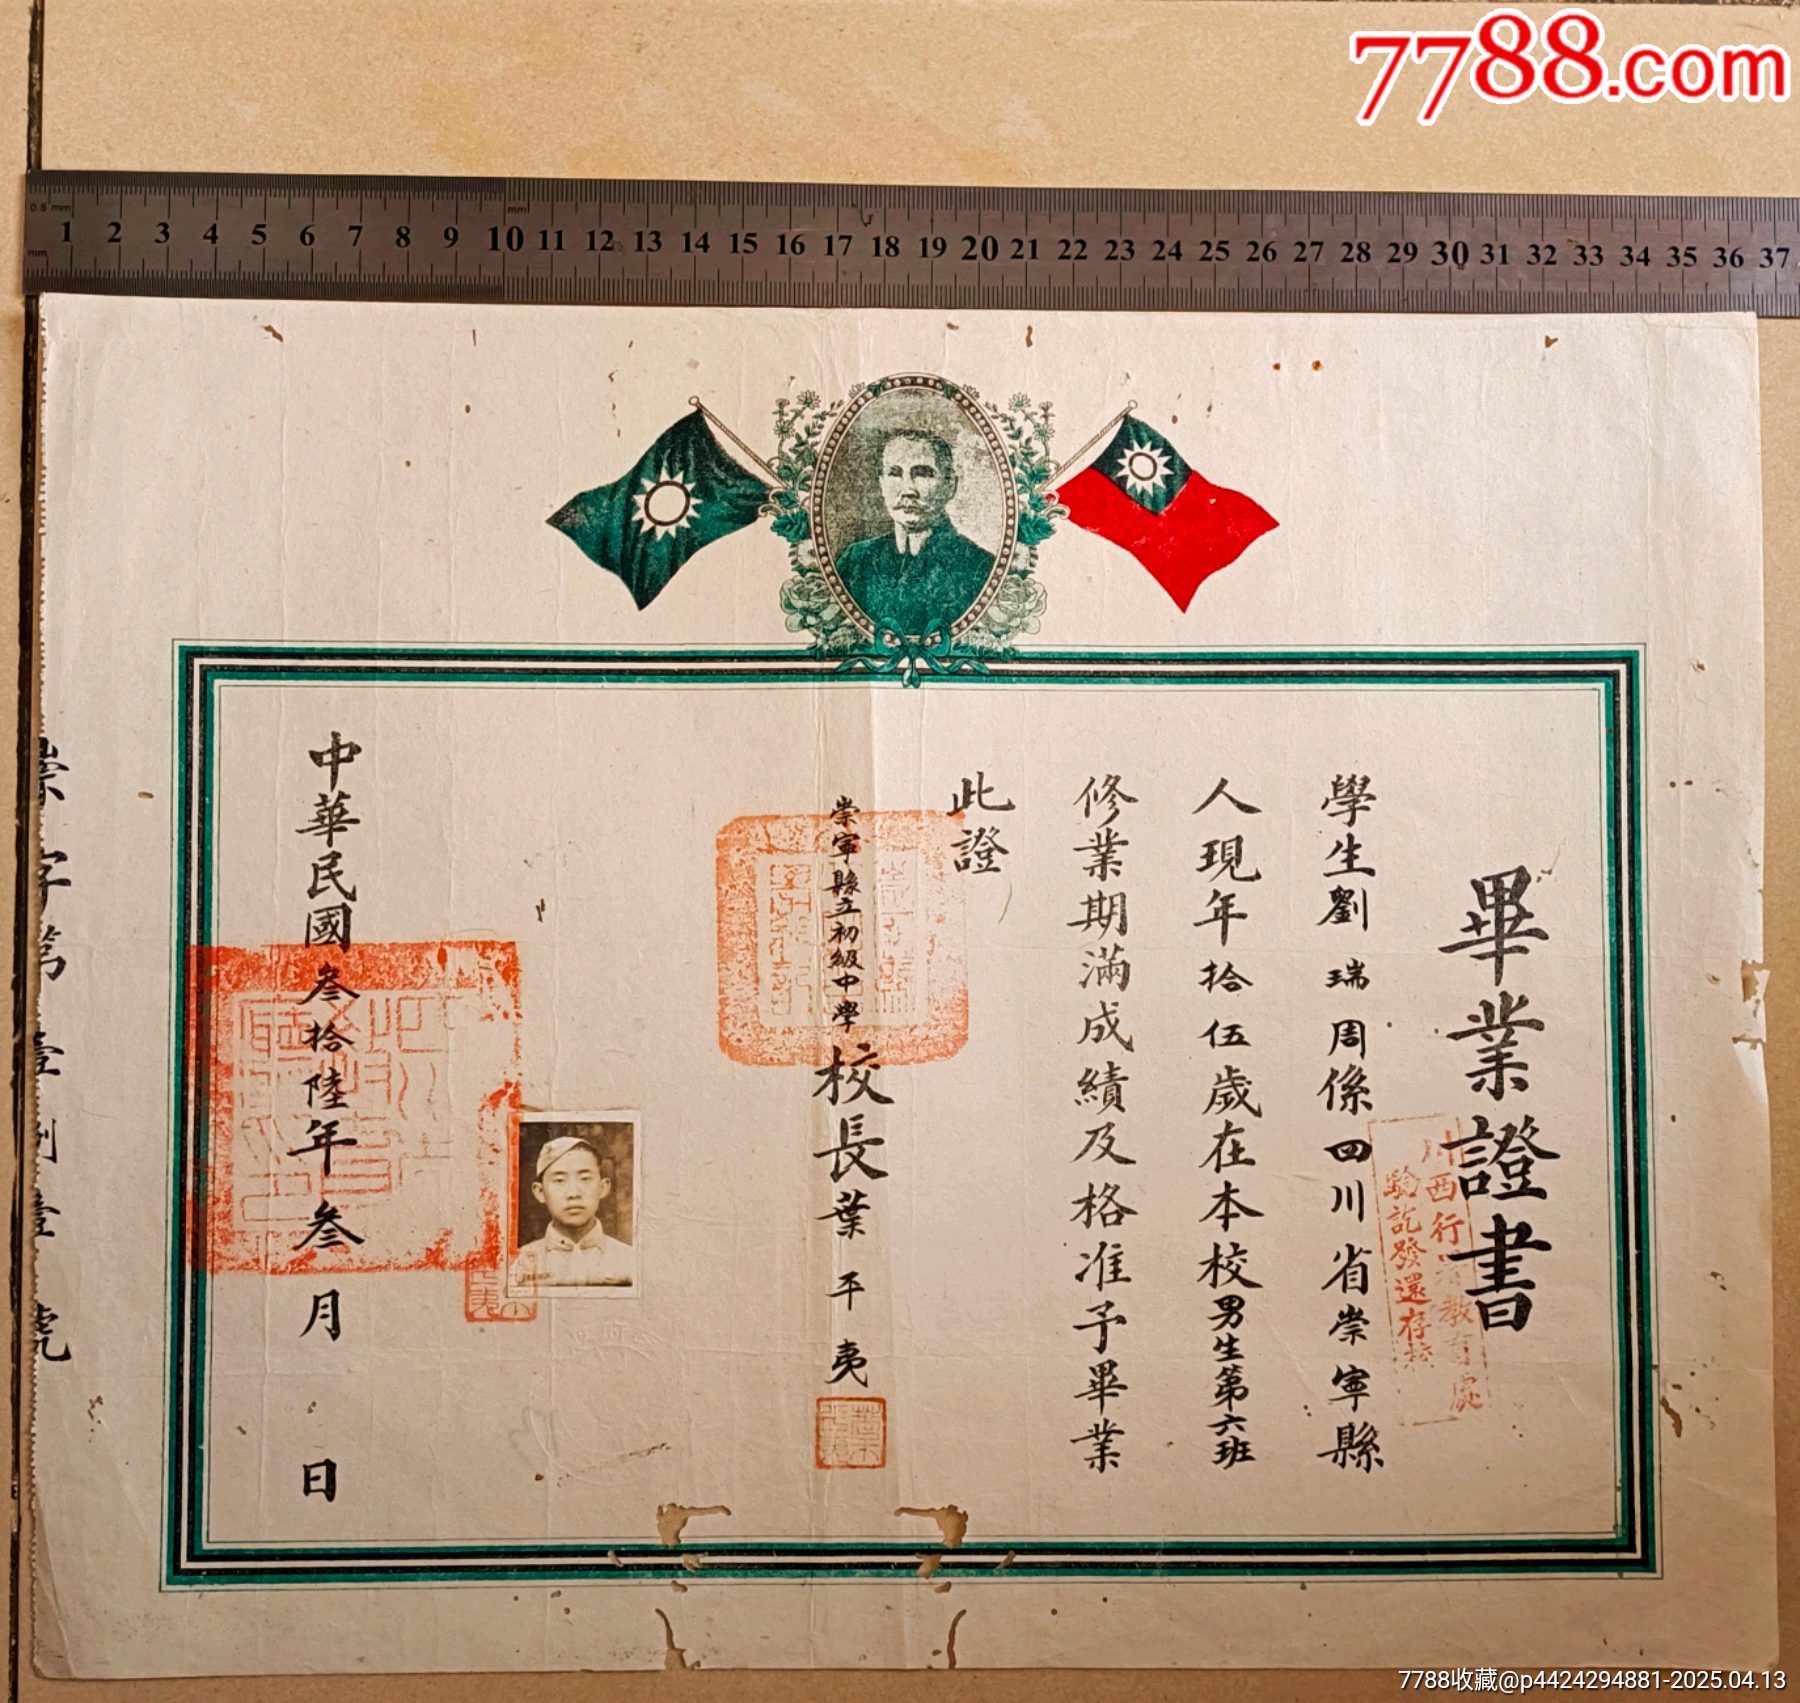 7788.com
0.5 mm
mm
mm
1 2 3 4 5 6 7 8 9 10 11 12 13 14 15 16 17 18 19 20 21 22 23 24 25 26 27 28 29 30 31 32 33 34 35 36 37
畢業證書
學生劉瑞周係四川省崇寧縣
人現年拾伍歲在本校男生第六班
修業期滿成績及格准予畢業
此證
崇寧縣立初級中學校長葉平夷
中華民國叁拾陸年叁月 日
崇字第壹捌壹號
川西行署教育處
驗訖發還存執
7788收藏@p4424294881-2025.04.13